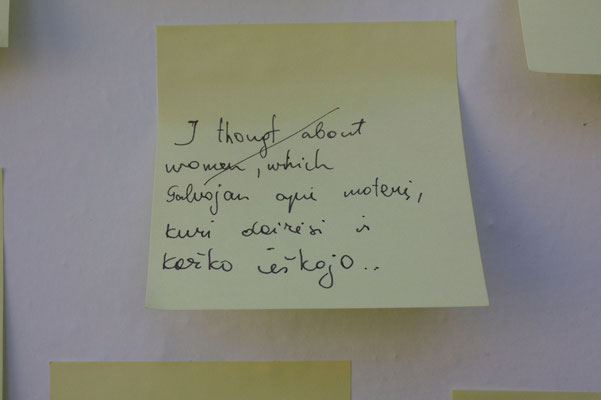 I thougt about
women, which
Galvojau apie moterį,
kuri dairėsi ir
kažko ieškojo..